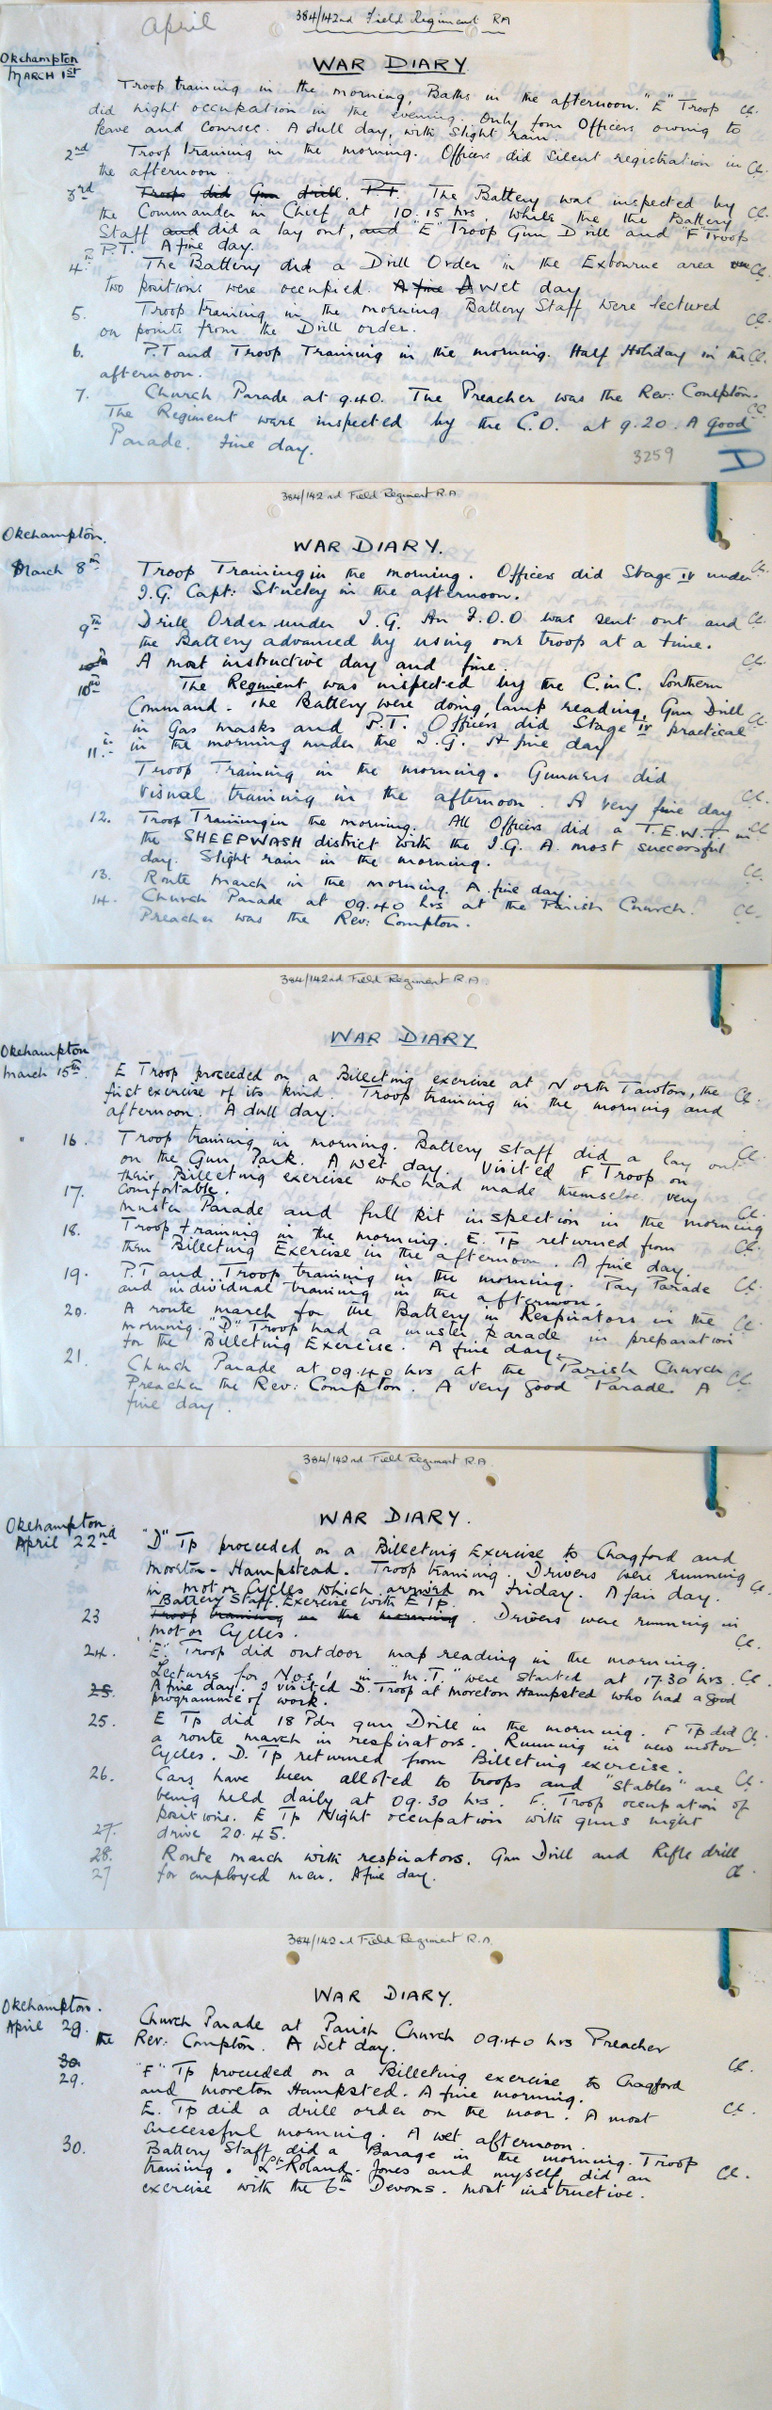 April
384/142nd Field Regiment RA
Okehampton
MARCH 1st
WAR DIARY
Troop training in the morning, Baths in the afternoon. "E" Troop
did night occupation in the evening. Only four Officers owing to
leave and courses. A dull day, with slight rain.
2nd Troop training in the morning. Officers did Silent registration in
the afternoon.
3rd Troops did Gun drill. P.T. The Battery was inspected by
the Commander in Chief at 10.15 hrs, while the the Battery
Staff and did a lay out, and "E" Troop Gun Drill and "F" Troop
P.T. A fine day.
4th The Battery did a Drill Order in the Exbourne area
two positions were occupied. A fine A wet day
5. Troop training in the morning Battery Staff were lectured
on points from the Drill order.
6. P.T and Troop Training in the morning. Half Holiday in the
afternoon.
7. Church Parade at 9.40. The Preacher was the Rev: Compton.
The Regiment were inspected by the C.O. at 9.20. A good
Parade. Fine day.
3259
384/142nd Field Regiment R.A.
Okehampton.
WAR DIARY.
March 8th Troop Training in the morning. Officers did Stage IV under
I.G. Capt: in the afternoon.
9th Drill Order under I.G. An F.O.O was sent out and
the Battery advanced by using one troop at a time.
A most instructive day and fine.
10th The Regiment was inspected by the C.in C. Southern
Command. The Battery were doing, lamp reading, Gun Drill
in Gas masks and P.T. Officers did Stage IV practical
in the morning under the I.G. A fine day
11. Troop Training in the morning. Gunners did
visual training in the afternoon. A very fine day
12. Troop Training in the morning. All Officers did a T.E.W.T. in
the SHEEPWASH district with the I.G. A most successful
day. Slight rain in the morning.
13. Route march in the morning. A fine day.
14. Church Parade at 09.40 hrs at the Parish Church.
Preacher was the Rev: Compton.
384/142nd Field Regiment R.A
WAR DIARY
Okehampton
March 15th. E Troop proceeded on a Billeting exercise at North Tawton, the
first exercise of its kind. Troop training in the morning and
afternoon. A dull day.
16. Troop training in morning. Battery Staff did a lay out
on the Gun Park. A wet day. Visited F Troop on
their Billeting exercise who had made themselves very
comfortable.
17. Muster Parade and full kit inspection in the morning
18. Troop training in the morning. E. Tp returned from
their Billeting Exercise in the afternoon. A fine day.
19. P.T and Troop training in the morning. Pay Parade
and individual training in the afternoon.
20. A route march for the Battery in Respirators in the
morning. "D" Troop had a muster parade in preparation
for the Billeting Exercise. A fine day.
21. Church Parade at 09.40 hrs at the Parish Church
Preacher the Rev: Compton. A very good Parade. A
fine day.
384/142nd Field Regiment R.A.
WAR DIARY.
Okehampton.
April 22nd "D" Tp proceeded on a Billeting Exercise to Chagford and
Moreton-Hampstead. Troop training. Drivers were running
in motor Cycles which arrived on Friday. A fair day.
Battery Staff. Exercise with E Tp.
23 Troop training in the morning. Drivers were running in
motor Cycles.
24. "E" Troop did outdoor map reading in the morning.
Lectures for Nos. 1 in "M.T." were started at 17.30 hrs.
25. A fine day. I visited D. Troop at Moreton Hampsted who had a good
programme of work.
25. E Tp did 18 Pdr gun Drill in the morning. F Tp did
a route march in respirators. Running in new motor
Cycles. D. Tp returned from Billeting exercise.
26. Cars have been alloted to troops and "stables" are
being held daily at 09.30 hrs. F. Troop occupation of
positions. E Tp Night occupation with guns night
27. drive 20.45.
28. Route march with respirators. Gun Drill and Rifle drill
27 for employed men. A fine day.
384/142nd Field Regiment R.A.
WAR DIARY.
Okehampton.
April 29. Church Parade at Parish Church 09.40 hrs Preacher
the Rev: Compton. A wet day.
30
29. "F" Tp proceeded on a Billeting exercise to Chagford
and Moreton Hampsted. A fine morning.
E. Tp did a drill order on the moor. A most
successful morning. A wet afternoon.
30. Battery Staff did a Barage in the morning. Troop
training. Lt Roland-Jones and myself did an
exercise with the 6th Devons. most instructive.